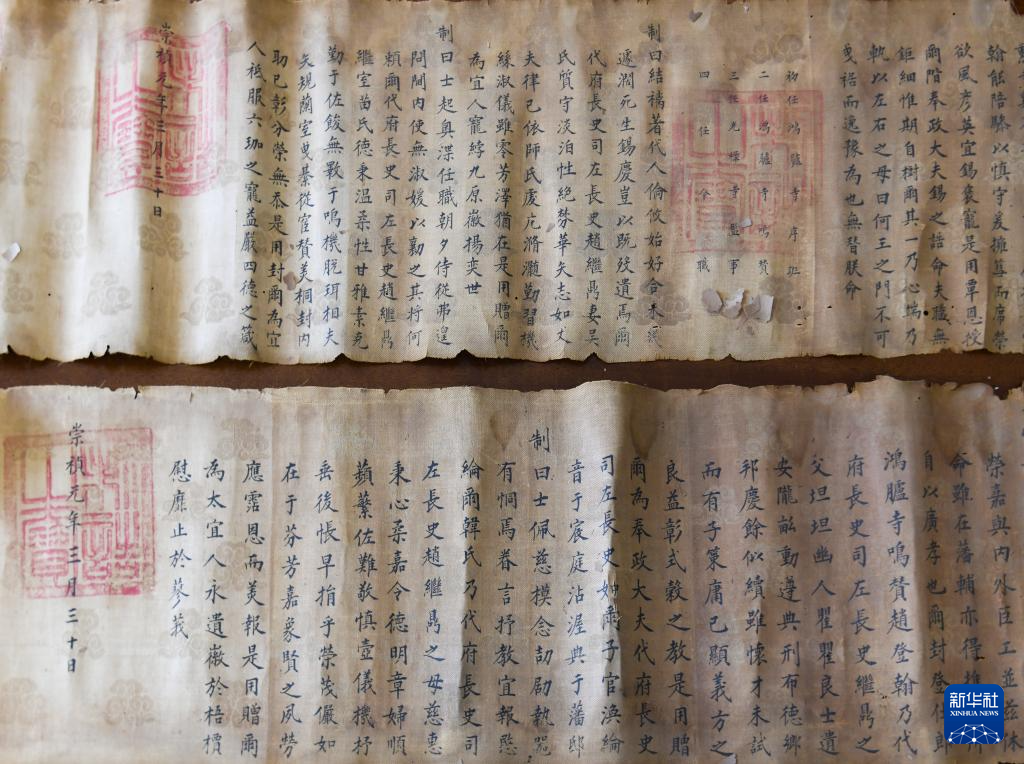 欲風彥英宜錫褒寵是用覃恩授
爾階奉政大夫錫之誥命夫職無
鉅細惟期自樹爾其一乃心端乃
軌以左右之母曰何王之門不可
曳裾而逸豫為也無替朕命
初任鴻臚寺序班
二任鴻臚寺鳴贊
三任光祿寺監事
四任今職
制曰結褵著代人倫攸始好合未幾
遽濶死生錫慶豈以既歿遺焉爾
代府長史司左長史趙繼鼎妻吳
氏質守淡泊性絶棼華矢志如丈
夫律己依師氏處勤習機
絲淑儀雖零芳澤猶在是用贈爾
為宜人寵綍九原徽揚奕世
制曰士起輿渫任職朝夕侍從弗遑
問閫內使無淑媛以勷之其將何
頼爾代府長史司左長史趙繼鼎
繼室苗氏德秉温柔性甘雅素克
勤于佐餕無斁于鳴機脱珥相夫
矢規蘭室曳綦從宦贊美桐封內
助已彰分榮無忝是用封爾為宜
人祗服六珈之寵益嚴四德之箴
崇禎元年三月三十日
榮嘉與內外臣工並茲休
命雖在藩輔亦得推
自以廣孝也爾封登仕郎
鴻臚寺鳴贊趙登翰乃代
府長史司左長史繼鼎之
父坦坦幽人瞿瞿良士遺
安隴畝動遵典刑布德鄉
邦慶餘似續雖懷才未試
而有子策庸已顯義方之
良益彰式穀之教是用贈
爾為奉政大夫代府長史
司左長史如爾子官渙綸
音于宸庭沾渥典于藩邸
制曰士佩慈模念劼劬執器
有恫焉眷言抒教宜報愍
綸爾韓氏乃代府長史司
左長史趙繼鼎之母慈惠
秉心柔嘉令德明章婦順
蘋蘩佐難敬慎壼儀機杼
岳後帳早捐乎榮茂儼如
在于芬芳嘉象賢之夙勞
應霑恩而美報是用贈爾
為太宜人永遺徽於梧檟
慰靡止於蓼莪
崇禎元年三月三十日
新华社
XINHUA NEWS